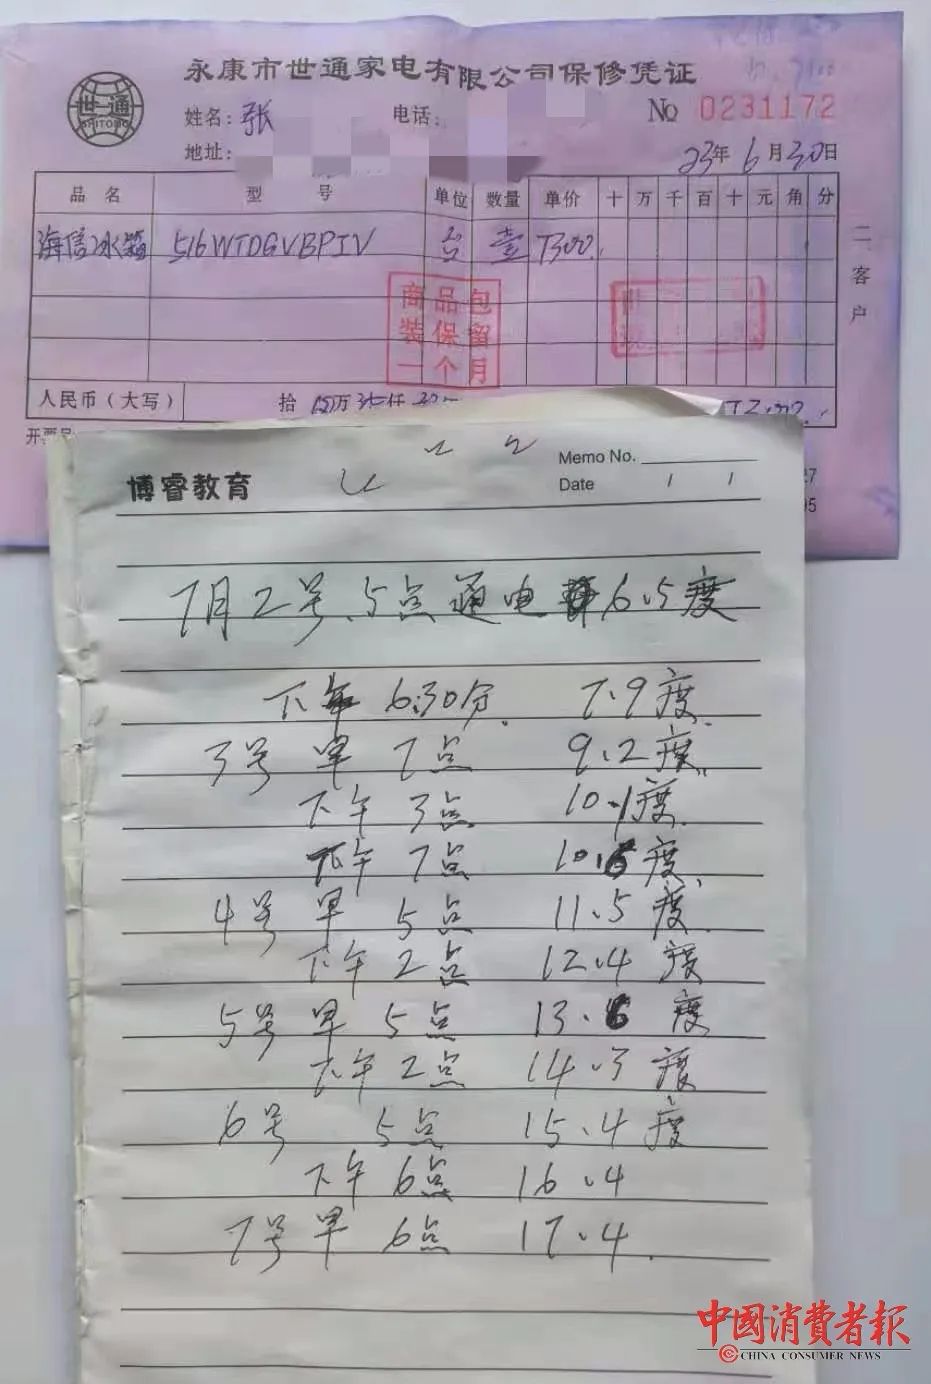 永康市世通家电有限公司保修凭证
世通
SHITONG
姓名：张 电话：
No 0231172
地址：
23年6月30日
品名 型号 单位 数量 单价 十 万 千 百 十 元 角 分
海信冰箱 516WTDGVBPIV 台 壹 7300.
商品包
装保留
一个月
二客户
人民币（大写） 拾 万 仟
开票
27
95
博睿教育
Memo No.
Date / /
7月2号.5点通电 6.5度
下午 6.30分. 7.9度.
3号 早 7点 9.2度.
下午 3点 10.1度.
下午 7点 10.6度.
4号 早 5点 11.5度.
下午 2点 12.4度
5号 早 5点 13.6度
下午 2点 14.3度
6号 5点 15.4度
下午 6点 16.4
7号 早 6点 17.4.
中国消费者报
CHINA CONSUMER NEWS